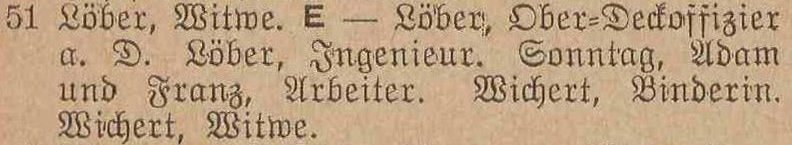 51 Löber, Witwe. E — Löber, Ober-Deckoffizier
a. D. Löber, Ingenieur. Sonntag, Adam
und Franz, Arbeiter. Wichert, Binderin.
Wichert, Witwe.